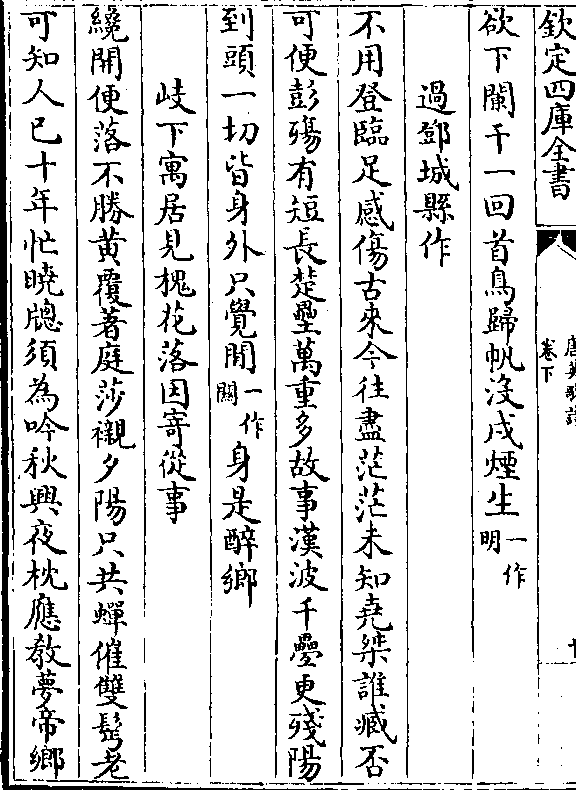 欽定四庫全書
唐英歌詩
卷下
欲下闌干一回首鳥歸帆沒戍煙生一作明
過鄧城縣作
不用登臨足感傷古來今往盡茫茫未知堯桀誰臧否
可便彭殤有短長楚壘萬重多故事漢波千疊更殘陽
到頭一切皆身外只覺閒一作關身是醉鄉
岐下寓居見槐花落因寄從事
纔開便落不勝黃覆著庭莎襯夕陽只共蟬催雙鬢老
可知人已十年忙曉牕須為吟秋興夜枕應教夢帝鄉